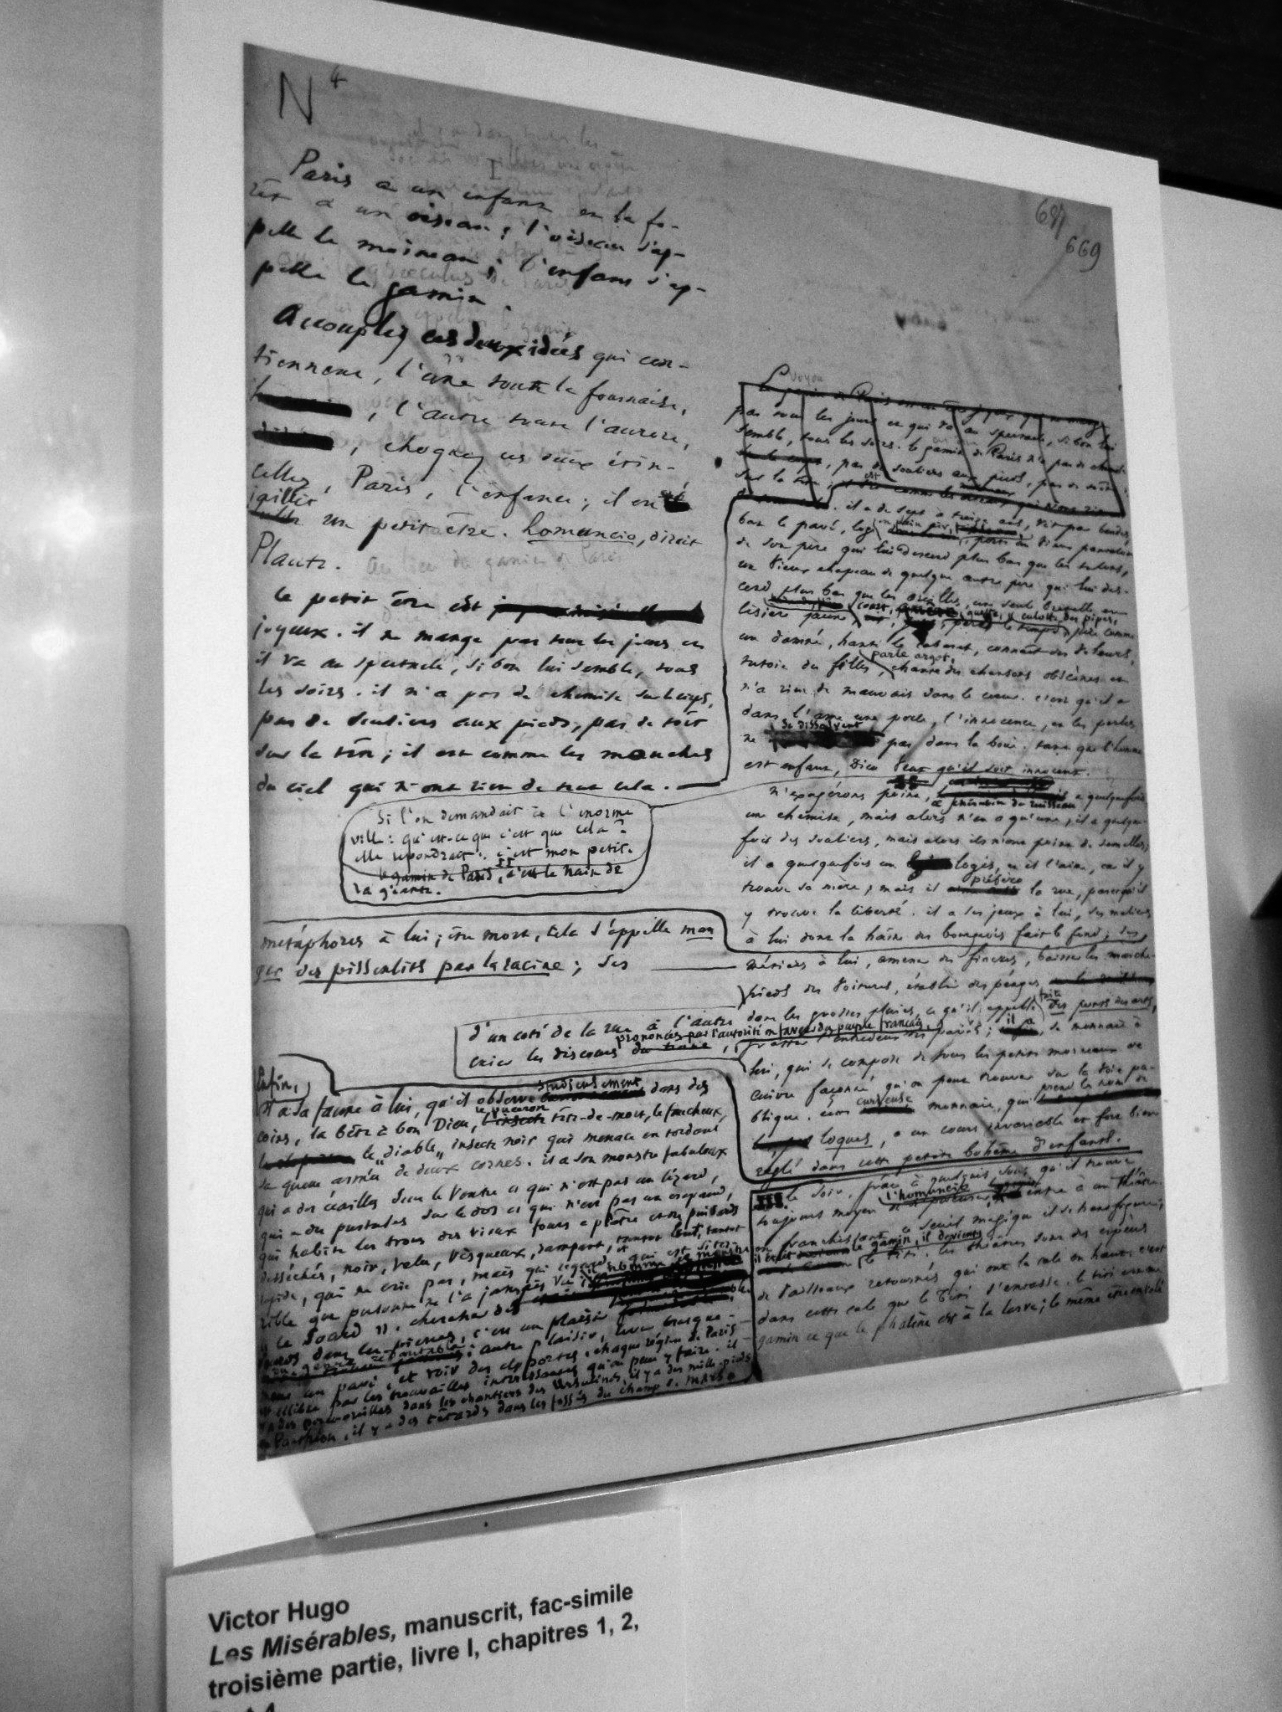 N 4
I
Paris a un enfant et la fo-
rêt a un oiseau; l'oiseau s'ap-
pelle le moineau; l'enfant s'ap-
pelle le gamin.
Accouplez ces deux idées qui con-
tiennent, l'une toute la fournaise,
, l'autre toute l'aurore,
, choquez ces deux étin-
celles, Paris, l'enfance; il en
jaillit
un petit être. homuncio, dirait
Plaute.
Ce petit être est
joyeux. il ne mange pas tous les jours et
il va au spectacle, si bon lui semble, tous
les soirs. il n'a pas de chemise sur le corps,
pas de souliers aux pieds, pas de toit
sur la tête; il est comme les mouches
du ciel qui n'ont rien de tout cela.
Si l'on demandait à l'énorme
ville: qu'est-ce que c'est que cela?
elle répondrait: c'est mon petit.
le gamin de Paris, c'est le nain de
la géante.
métaphores à lui; être mort, cela s'appelle man
ger des pissenlits par la racine; des
d'un côté de la rue à l'autre
prononcés par l'autorité en faveur du peuple français,
crier les discours
Enfin,
il a sa faune à lui, qu'il observe studieusement dans des
coins, la bête à bon Dieu, le puceron tête-de-mort, le faucheux,
le "diable", insecte noir qui menace en tordant
sa queue armée de deux cornes. il a son monstre fabuleux
qui a des écailles sous le ventre et qui n'est pas un lézard,
qui a des pustules sur le dos et qui n'est pas un crapaud,
qui habite les trous des vieux fours à plâtre et des puisards
desséchés, noir, velu, visqueux, rampant, tantôt lent, tantôt
rapide, qui ne crie pas, mais qui regarde, et qui est si ter-
rible que personne ne l'a jamais vu
le sourd". chercher des
sourds dans les pierres, c'est un plaisir
autre plaisir, lever brusque-
ment un pavé, et voir des cloportes. chaque région de Paris
est célèbre par les trouvailles intéressantes qu'on peut y faire. il
y a des perce-oreilles dans les chantiers des Ursulines, il y a des mille-pieds
au Panthéon, il y a des têtards dans les fossés du champ de mars.
681
669
pas tous les jours et qui va au spectacle, si bon lui
semble, tous les soirs. le gamin de Paris n'a pas de chemise
, pas de souliers aux pieds, pas de toit
sur la tête;
il a de sept à treize ans, vit par bandes,
bat le pavé, loge en plein air, porte un vieux pantalon
de son père qui lui descend plus bas que les talons,
un vieux chapeau de quelque autre père qui lui des-
cend plus bas que les oreilles, une seule bretelle en
lisière jaune, court, guette, quête, perd le temps, culotte des pipes, jure comme
un damné, hante le cabaret, connaît des voleurs,
tutoie des filles, parle argot, chante des chansons obscènes et
n'a rien de mauvais dans le coeur. c'est qu'il a
dans l'âme une perle, l'innocence, et les perles
ne se dissolvent pas dans la boue. tant que l'homme
est enfant, Dieu veut qu'il soit innocent.
n'exagérons point, a quelquefois
une chemise, mais alors n'en a qu'une; il a quelque-
fois des souliers, mais alors ils n'ont point de semelles;
il a quelquefois un logis, et il l'aime, car il y
trouve sa mère; mais il préfère la rue, parcequ'il
y trouve la liberté. il a ses jeux à lui, ses malices
à lui dont la haine des bourgeois fait le fond; ses
métiers à lui, amener des fiacres, baisser les marche-
pieds des voitures, établir des péages
dans les grosses pluies, ce qu'il appelle faire des ponts des arts,
gratter l'entredeux des pavés; il a sa monnaie à
lui, qui se compose de tous les petits morceaux de
cuivre façonné qu'on peut trouver sur la voie pu-
blique. cette curieuse monnaie, qui prend le nom de
loques, a un cours invariable et fort bien
réglé dans cette petite bohème d'enfants.
le soir, grâce à quelques sous qu'il trouve
toujours moyen de se procurer, l'homuncio entre à un théâtre.
en franchissant ce seuil magique il se transfigure;
il était le gamin, il devient
le titi. les théâtres sont des espèces
de vaisseaux retournés qui ont la cale en haut. c'est
dans cette cale que le titi s'entasse. le titi est au
gamin ce que le phalène est à la larve; le même être envolé
Victor Hugo
Les Misérables, manuscrit, fac-simile
troisième partie, livre I, chapitres 1, 2,